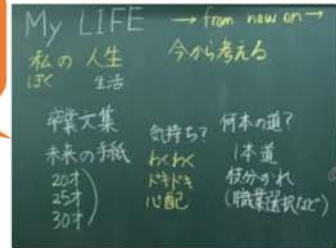 My LIFE → from now on →
私の 人生 今から考える
ぼく 生活
卒業文集
未来の手紙
20才
25才
30才
気持ち?
わくわく
ドキドキ
心配
何本の道?
1本道
枝分かれ
(職業選択など)